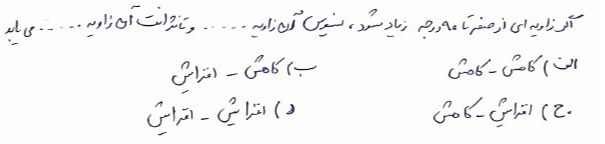 اگر زاویه ای از صفر تا ۹۰ درجه زیاد شود، کسینوس آن زاویه ..... و تانژانت آن زاویه ..... می یابد
الف) کاهش - کاهش ب) کاهش - افزایش
ج) افزایش - کاهش د) افزایش - افزایش